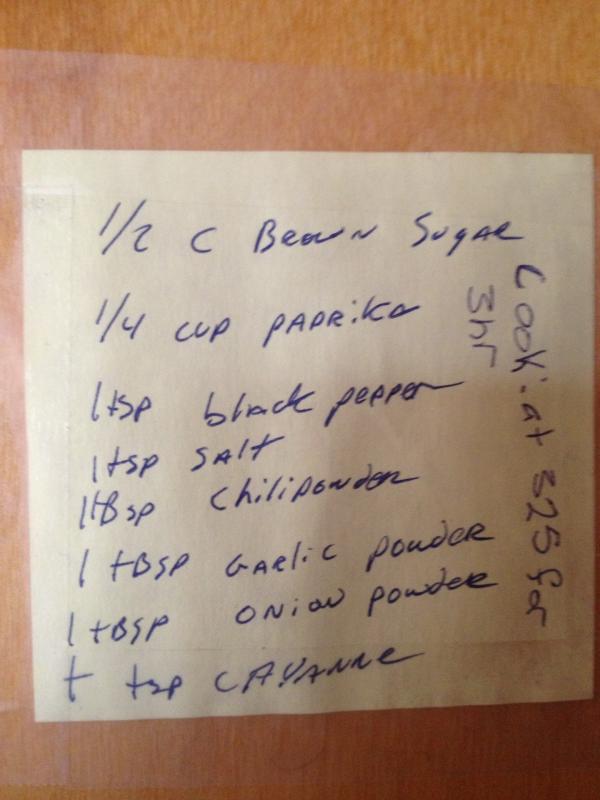 1/2 C Brown Sugar
1/4 cup paprika
1 tsp black pepper
1 tsp salt
1 tBsp chili powder
1 tBSP Garlic powder
1 tBSP onion powder
tsp CAYANNE
Cook: at 325 for
3hr